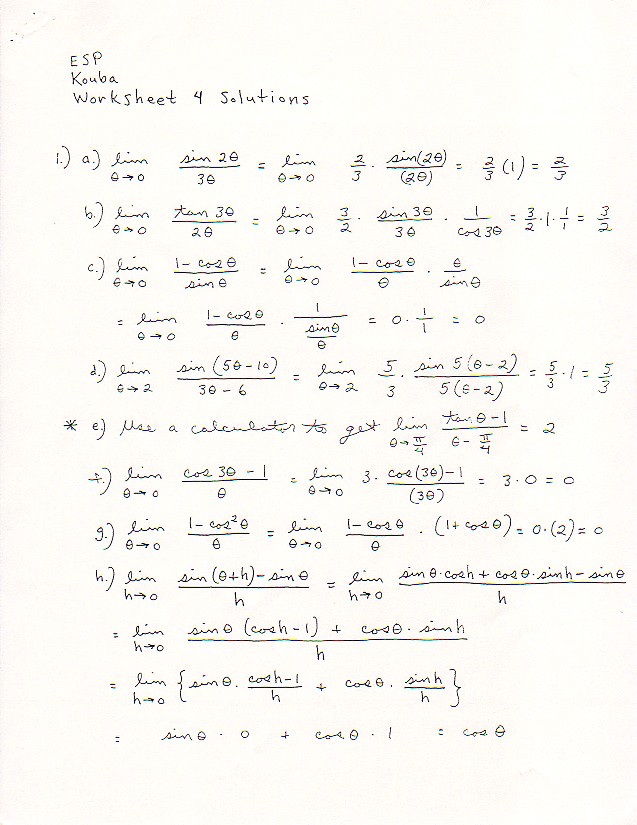 ESP
Kouba
Worksheet 4 Solutions
1.) a.) lim θ→0 sin 2θ / 3θ = lim θ→0 2/3 · sin(2θ)/(2θ) = 2/3 (1) = 2/3
b.) lim θ→0 tan 3θ / 2θ = lim θ→0 3/2 · sin 3θ / 3θ · 1/cos 3θ = 3/2 · 1 · 1/1 = 3/2
c.) lim θ→0 1 - cos θ / sin θ = lim θ→0 1 - cos θ / θ · θ / sin θ
= lim θ→0 1 - cos θ / θ · 1 / (sin θ / θ) = 0 · 1/1 = 0
d.) lim θ→2 sin (5θ - 10) / 3θ - 6 = lim θ→2 5/3 · sin 5(θ - 2) / 5(θ - 2) = 5/3 · 1 = 5/3
* e) Use a calculator to get lim θ→π/4 tan θ - 1 / θ - π/4 = 2
f.) lim θ→0 cos 3θ - 1 / θ = lim θ→0 3 · cos(3θ) - 1 / (3θ) = 3 · 0 = 0
g.) lim θ→0 1 - cos²θ / θ = lim θ→0 1 - cos θ / θ · (1 + cos θ) = 0 · (2) = 0
h.) lim h→0 sin (θ+h) - sin θ / h = lim h→0 sin θ · cos h + cos θ · sin h - sin θ / h
= lim h→0 sin θ (cos h - 1) + cos θ · sin h / h
= lim h→0 { sin θ · cos h - 1 / h + cos θ · sin h / h }
= sin θ · 0 + cos θ · 1 = cos θ